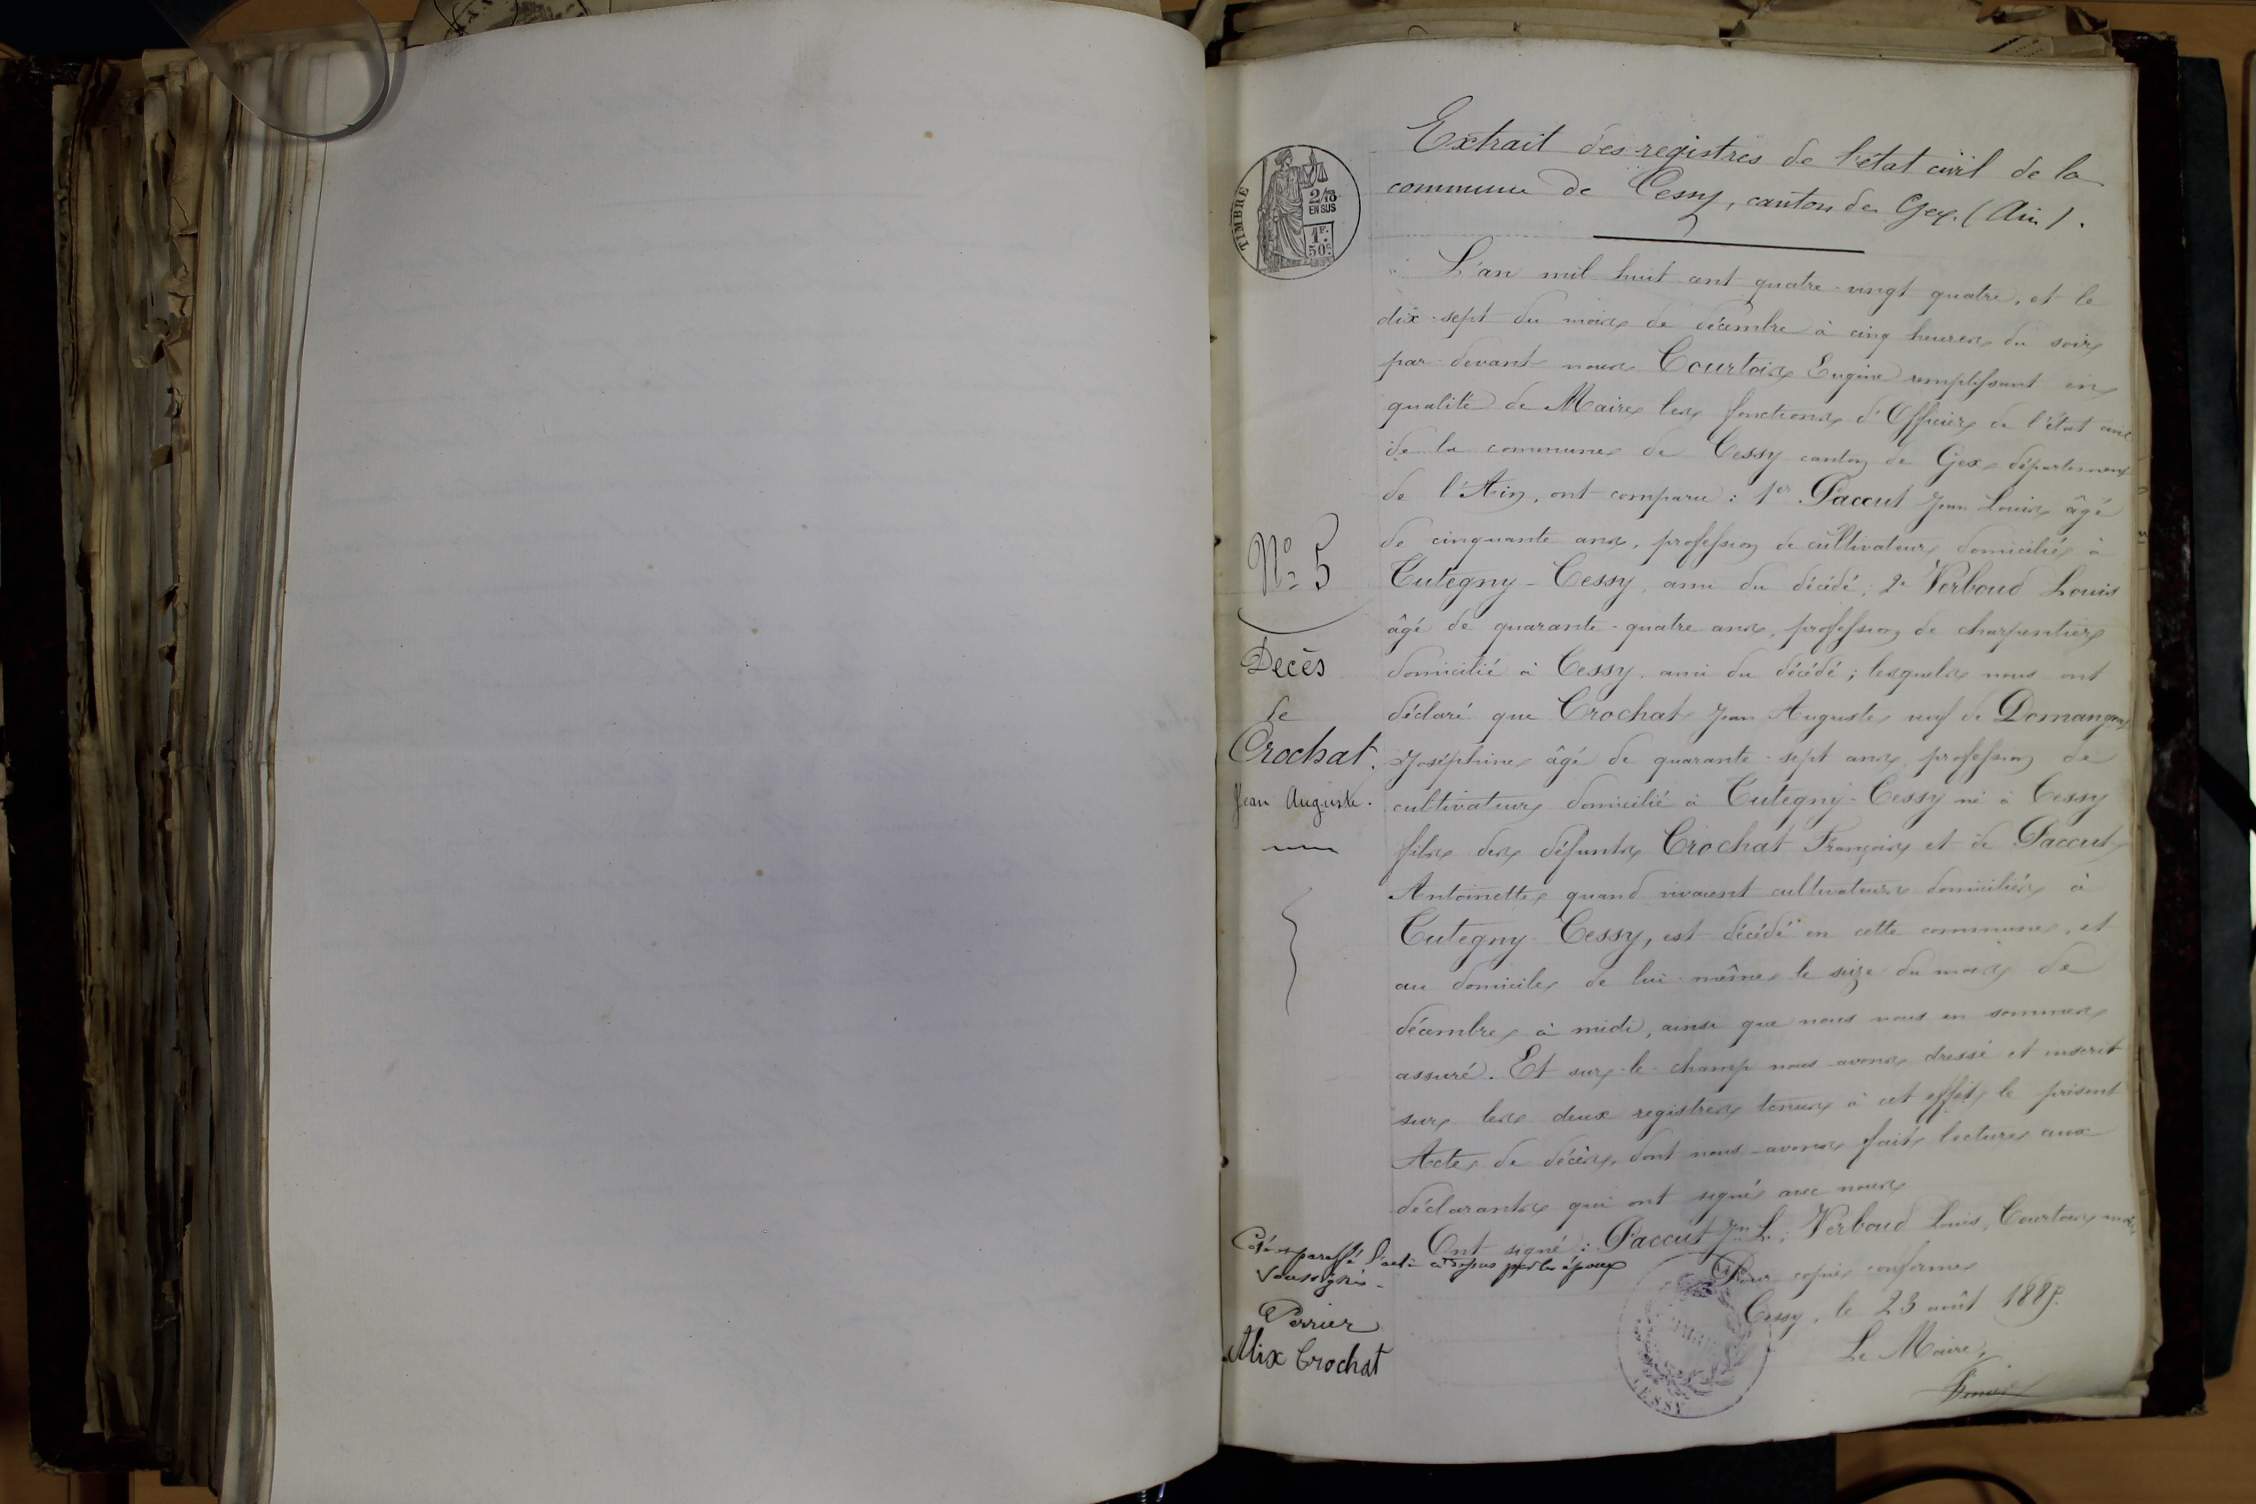 Extrait des registres de l'état civil de la
commune de Cessy, canton de Gex. (Ain).
TIMBRE
2/10
EN SUS
1F.
50c.
L'an mil huit cent quatre-vingt quatre, et le
dix-sept du mois de décembre à cinq heures du soir
par-devant nous Courtois Eugène remplissant en
qualité de Maire les fonctions d'Officier de l'état civil
de la commune de Cessy canton de Gex département
de l'Ain, ont comparu : 1er Paccut Jean Louis âgé
de cinquante ans, profession de cultivateur domicilié à
Tutegny-Cessy, ami du décédé, 2e Verboud Louis
âgé de quarante-quatre ans, profession de charpentier
domicilié à Cessy, ami du décédé ; lesquels nous ont
déclaré que Crochat Jean Auguste, veuf de
Joséphine âgé de quarante-sept ans, profession de
cultivateur domicilié à Tutegny-Cessy né à Cessy
fils des défunts Crochat François et de Paccut
Antoinette, quand vivaient cultivateurs domiciliés à
Tutegny-Cessy, est décédé en cette commune, et
au domicile de lui-même le seize du mois de
décembre à midi, ainsi que nous nous en sommes
assuré. Et sur-le-champ nous avons dressé et inscrit
sur les deux registres tenus à cet effet, le présent
Acte de décès, dont nous avons fait lecture aux
déclarants qui ont signé avec nous
Ont signé : Paccut Jn L., Verboud Louis, Courtois maire
Pour copie conforme
Cessy, le 23 août
Le Maire,
CESSY
No 5
Decès
de
Crochat.
Jean Auguste.
Coté et paraffé l'acte ci dessus par les époux
soussignés -
Perrier
Alix Crochat